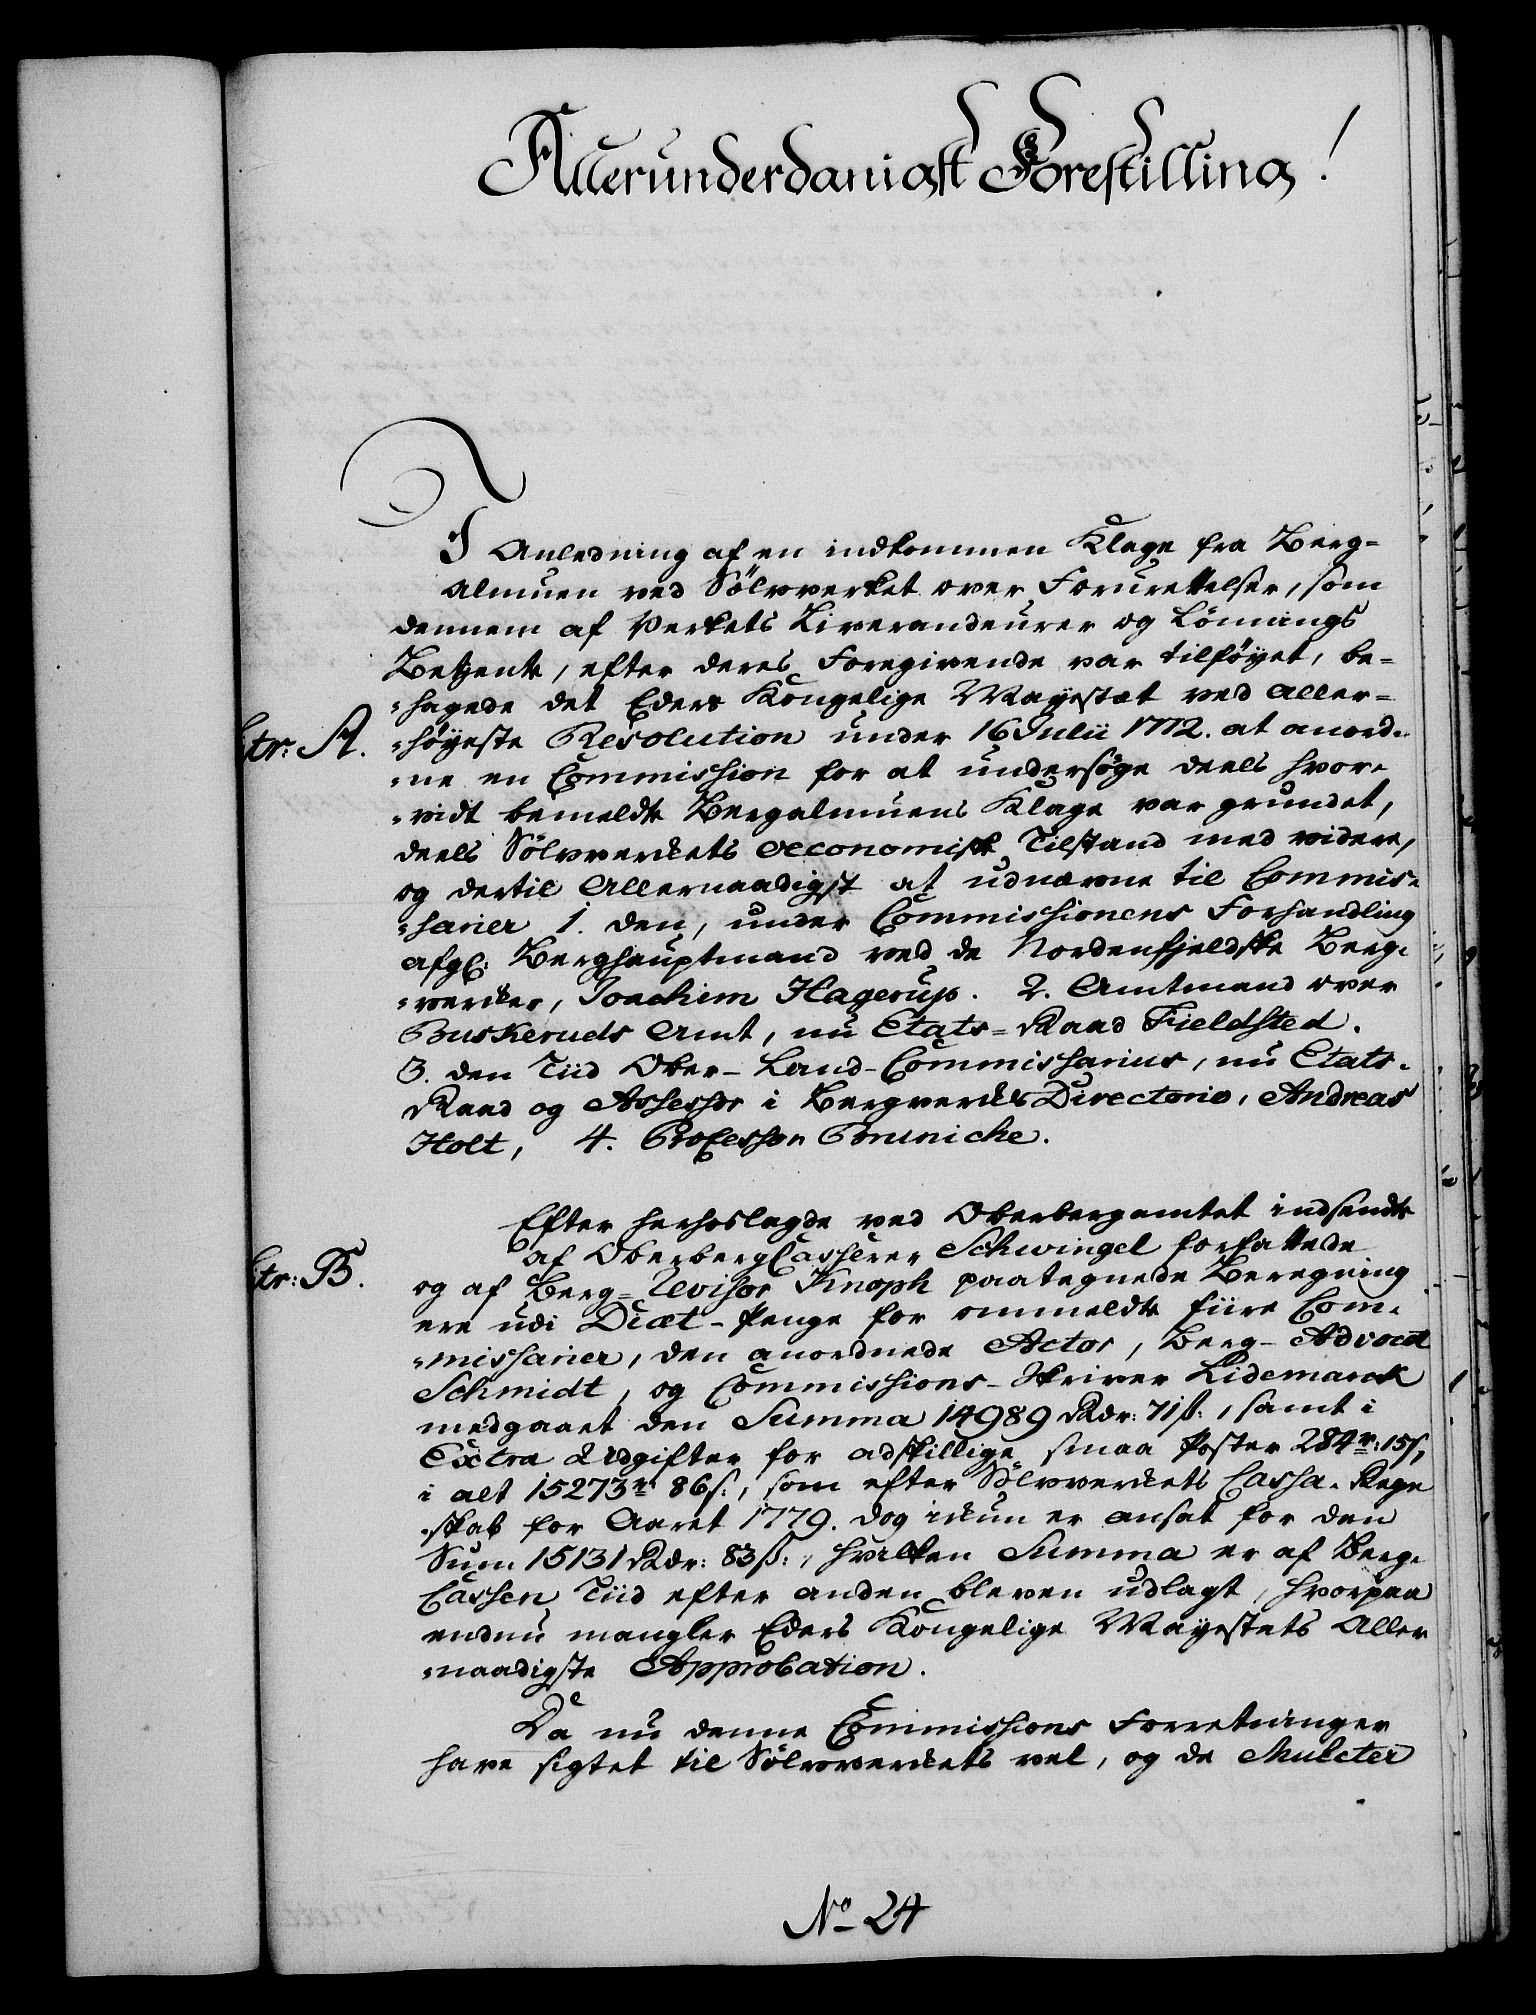 Allerunderdanigst Forestilling!
I Anledning af en indkommen Klage fra Berg-
Almuen ved Sölvverket over Forurettelser, som
dennem af Verkets Liverandeurer og Lönnings
Betjente, efter deres Foregivende var tilföyet, be-
-hagede det Eders Kongelige Mayestæt ved Aller-
Ltr: A. -höyeste Resolution under 16 Julii 1772. at anord-
-ne en Commission for at undersöge deels hvor-
-vidt bemeldte Bergalmuens Klage var grundet,
deels Sölvverkets oeconomiske Tilstand med videre,
og dertil Allernaadigst at udnævne til Commis-
-sarier 1. den, under Commissionens Forhandling
afgl: Berghauptmand ved de Nordenfjeldske Berg-
-verker, Joachim Hagerup. 2. Amtmand over
Buskeruds Amt, nu Etats-Raad Fieldsted.
3. den Tiid Ober-Land-Commissarius, nu Etats-
Raad og Assessor i Bergverks Directorio, Andreas
Holt, 4. Professor Brünicke.
Efter herhoslagde ved Oberbergamtet indsendte
af OberbergCasserer Schwingel forfattede
Ltr: B. og af Berg-Revisor Knoph paategnede Beregning
ere udi Diæt-Penge for ommeldte fiire Com-
-missarier, den anordnede Actor, Berg-Advocat
Schmidt, og Commissions-Skriver Lidemarck
medgaaet den Summa 14989 Rdr: 71ß:, samt i
Extra Udgifter for adskillige smaa Poster 284r: 15ß,
i alt 15273r 86ß:, som efter Sölvverkets Cassa-Regn
-skab for Aaret 1779. dog ickun er ansat for den
Sum 15131 Rdr: 83ß:, hvilken Summa er af Berg-
Cassen Tiid efter anden bleven udlagt, hvorpaa
endnu mangler Eders Kongelige Mayestets Aller
-naadigste Approbation.
Da nu denne Commissions Forretninger
have sigtet til Sölvverkets vel, og de Mulcter
No 24